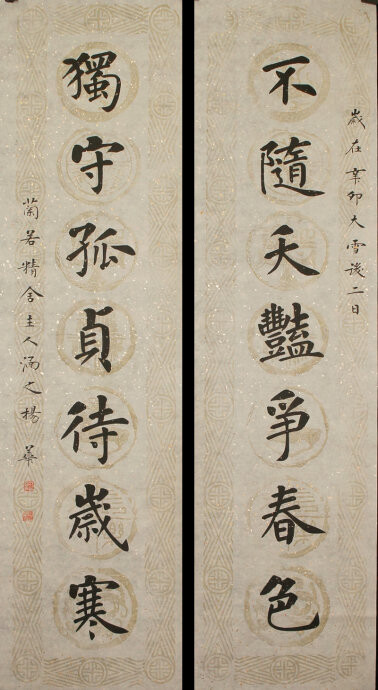 歲在辛卯大雪後二日
不隨夭豔爭春色
獨守孤貞待歲寒
蘭若精舍主人涵之楊華